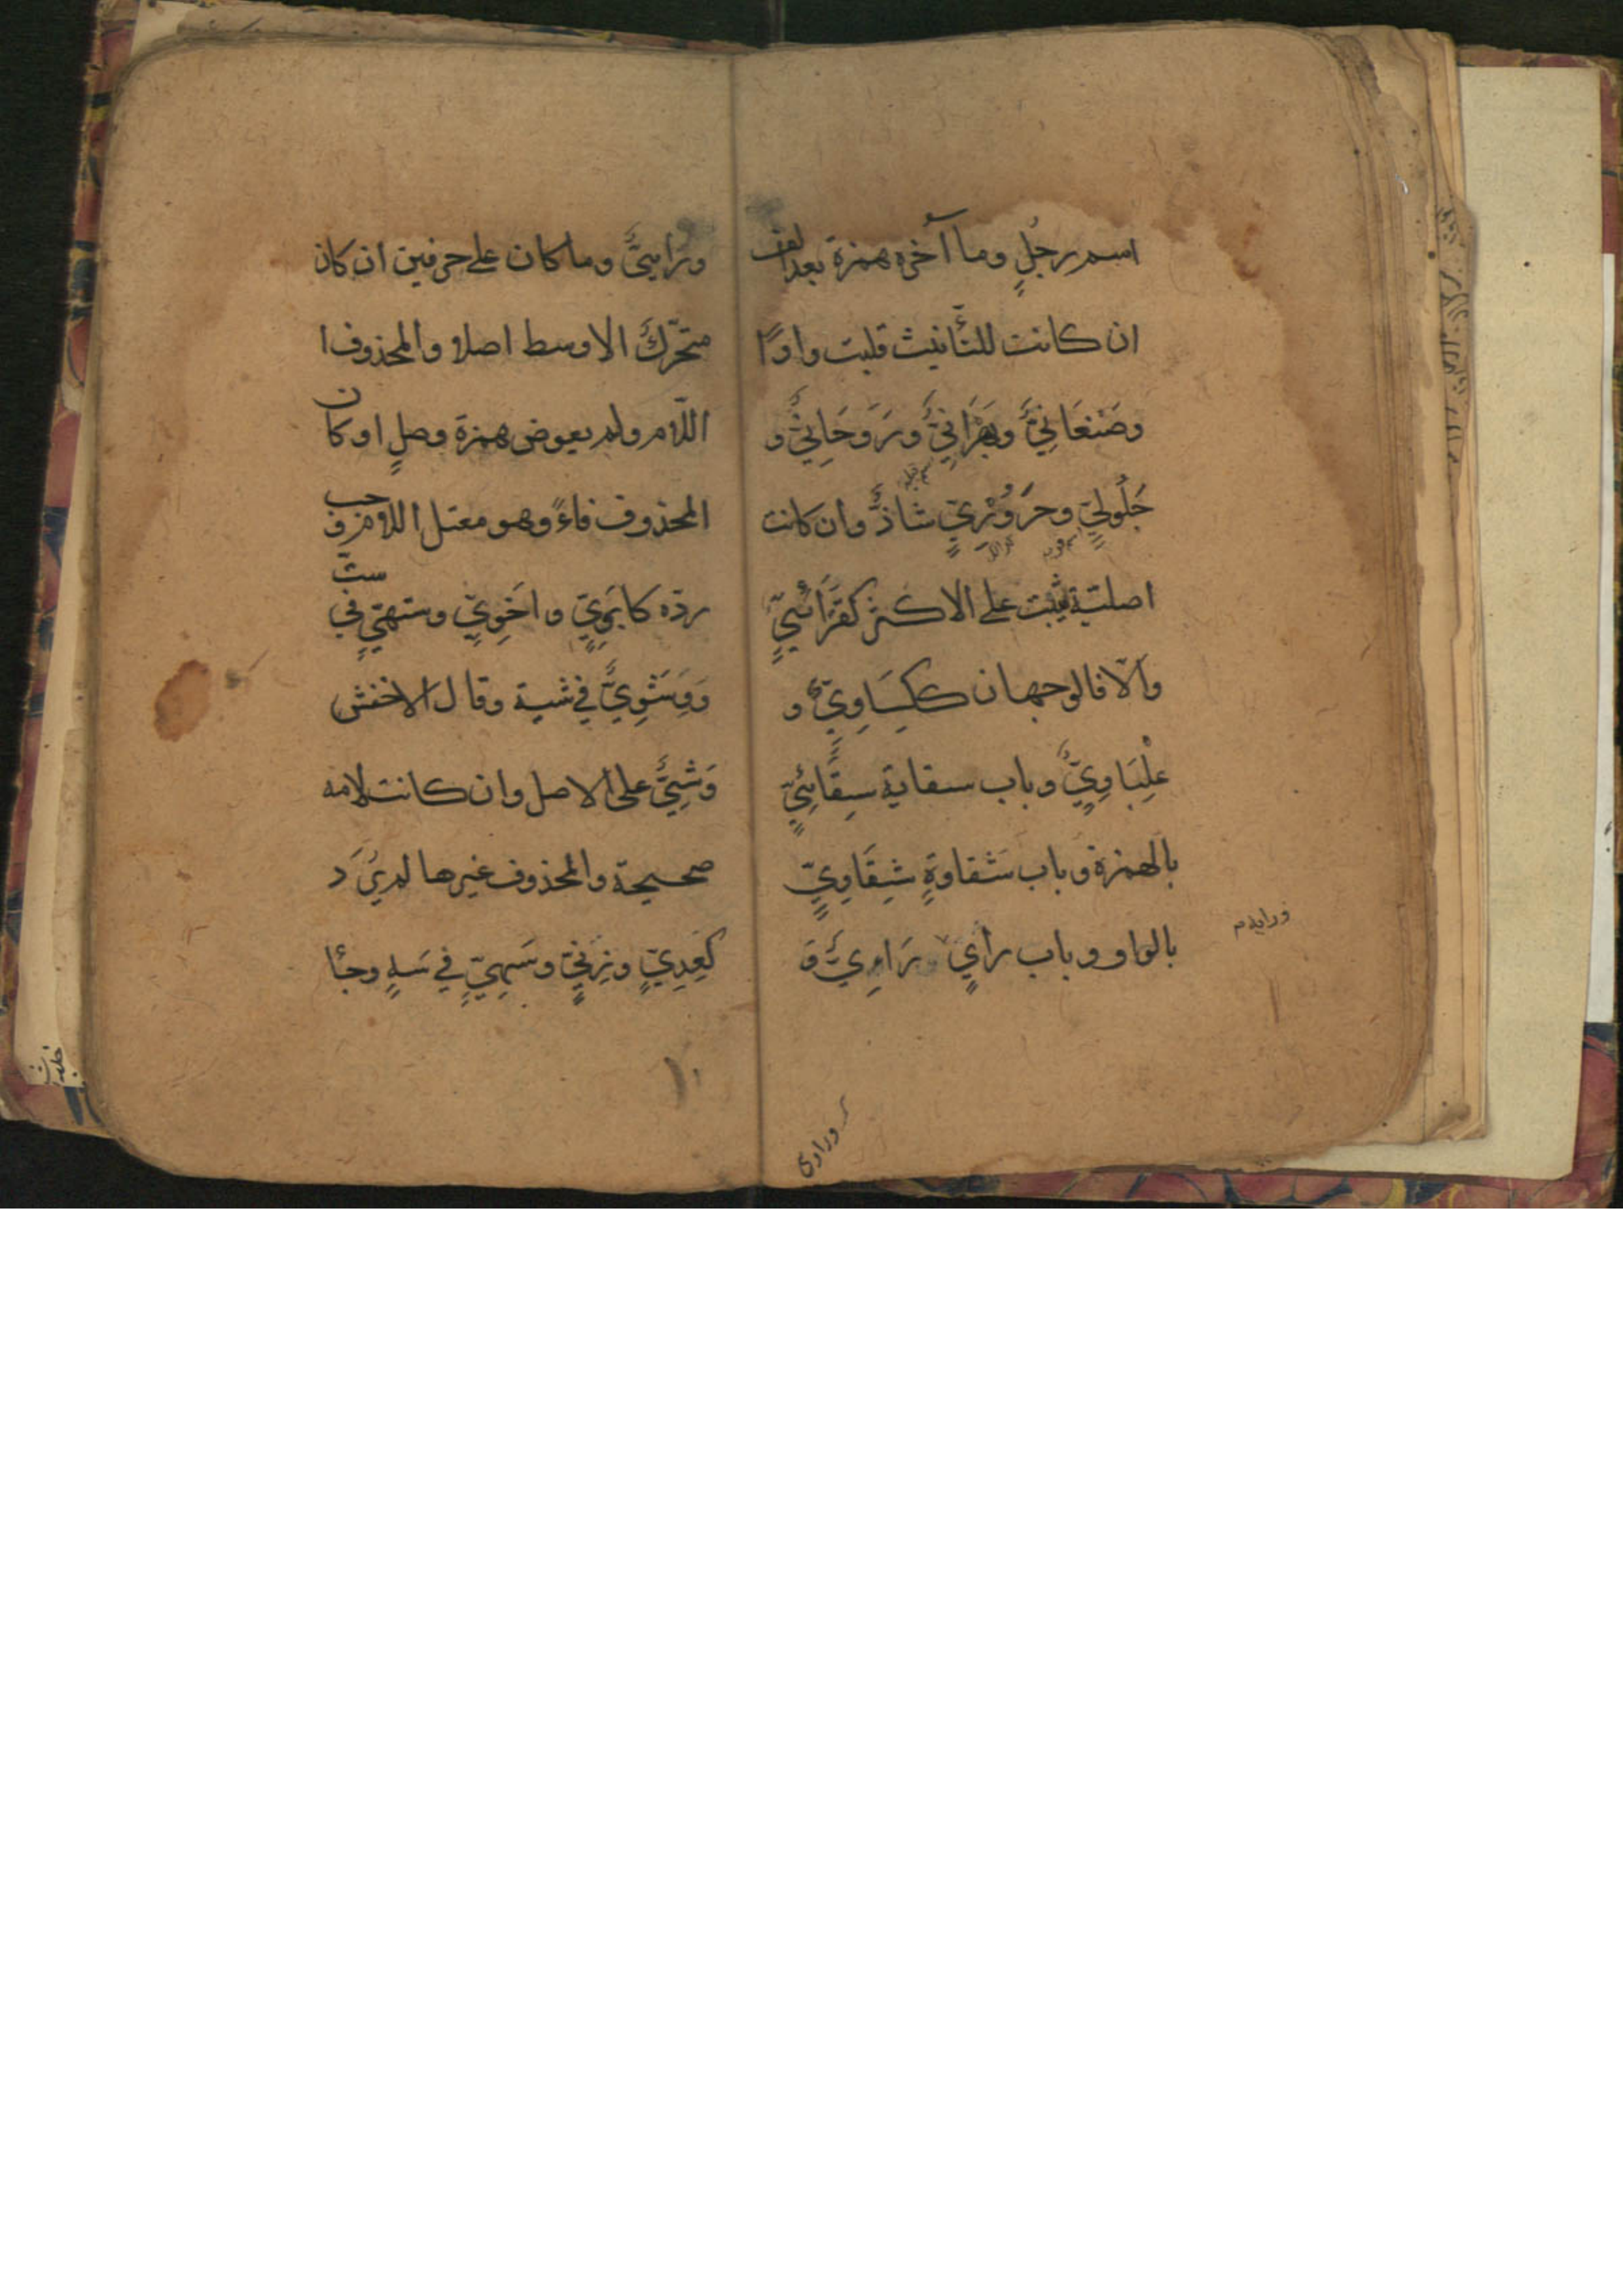 اسم رجلٍ وما آخره همزة بعد الف
ان كانت للتأنيث قلبت واوًا
وصَنْعَانِيٌّ وبَهْرَانِيٌّ ورَوحَانِيٌّ و
جَلُولِيٍّ وحَرَوُرِيٍّ شاذٌّ وان كانت
اصلية ثبت على الاكثر كقرّائيٍّ
والا فالوجهان ككِسَاوِيٍّ و
عِلْبَاوِيٍّ وباب سقاية سِقَائِيٍّ
بالهمزة وباب شَقاوةٍ شِقَاوِيٍّ
بالواو وباب رأيٍ رَاوِيٌّ وَ
ورايىٌّ وما كان على حرفين ان كان
متحرّك الاوسط اصلا والمحذوف ا
اللّام ولم يعوض همزة وصلٍ او كان
المحذوف فاءً وهو معتل اللام وجب
ردّه كابَوِيٍّ واخَوِيٍّ وستهيٍّ في ستٍ
وَوِشَوِيٌّ في شية وقال الاخفش
وَشِيِيٌّ على الاصل وان كانت لامه
صحيحة والمحذوف غيرها لم يُرَد
كعِدِيٍّ وزِنِيٍّ وسَهِيٍّ في سَهٍ وجا
وراوى